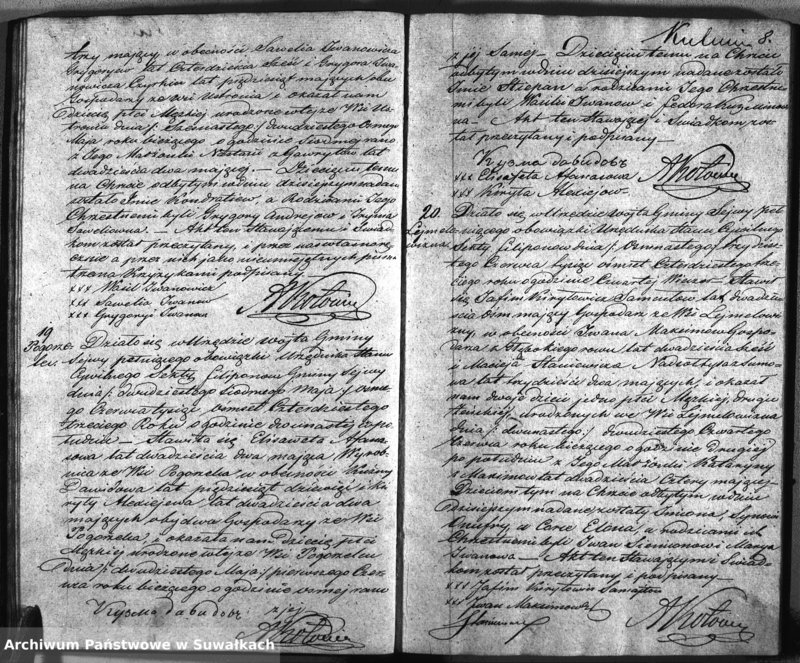 trzy mającey, w obecności Sawelia Iwanowicza
Grygoryew lat Czterdzieścia Sześć i Grygora Iwa
nowicza lat pięćdziesiąt mających oba
Gospodarzy ze wsi i okazał nam
Dziecię płci Męzkiej urodzone wtejże Wsi
dnia /: Szesnastego :/ dwudziestego Osmego
Maja roku bieżącego o godzinie Siodmej rano
z Jego Małżonki z Gawryłów lat
dwadzieścia dwa mającej. — Dziecięciu temu
na Chrzcie odbytym wdniu dzisiejszym nadane
zostało Imie Kondratiew, a Rodzicami Jego
Chrzestnemi byli Grygory Andrejow i Iryna
Saweliowna. — Akt ten Stawającemu i Świad
kom został przeczytany, i przez nas własnoręcz
nie a przez nich jako nieumiejętnych pisma
trzema Krzyżykami podpisany. —
xxx Wasil Iwanowicz
xxx Sawelia Iwanow
xxx Grygoryi Iwanow
19
Pogorze
lec.
Działo się w Urzędzie Wojta Gminy
Sejwy pełniącego obowiązki Urzędnika Stanu
Cywilnego Sekty Filiponow Gminy Sejwy
dnia /: dwudziestego Siodmego Maja :/ Osme
go Czerwca tysiąc osmset Czterdziestego
trzeciego Roku o godzinie dwunastej w po
łudnie — Stawiła się Elisaweta Afana
sowa lat dwadzieścia dwa mająca Wyrob
nica ze Wsi Pogorzelca w obecności Kuźmy
Dawidowa lat pięćdziesiąt dziewięć i Ki
ryły Alexiejewa lat dwadzieścia dwa
mających obydwa Gospodarzy ze Wsi
Pogorzelca, i okazała nam Dziecię płci
Męzkiej urodzone wtejże Wsi Pogorzelcu
dnia /: dwudziestego Maja :/ pierwszego Czer
wca roku bieżącego o godzinie osmej rano
Кузма давидовъ z jej
8.
z jej Samej — Dziecięciu temu na Chrzcie
odbytym wdniu dzisiejszym nadane zostało
Imie Stiepan a rodzicami Jego Chrzestne
mi byli Iwanow i
na — Akt ten Stawającej i Świadkom zo
stał przeczytany i podpisany. —
Кузма давидовъ
xxx Elisaweta Afanasowa
xxx Kiryła Alexiejow.
20.
Działo się w Urzędzie Wojta Gminy Sejwy peł
niącego obowiązki Urzędnika Stanu Cywilnego
Sekty Filiponow dnia /: Osmnastego :/ trzydzie
stego Czerwca tysiąc osmset Czterdziestego trze
ciego roku o godzinie Czwartej Wieczor — Stawił
się Jafim Kiryłowicz Samcutow lat dwadzie
ścia osm mający Gospodarz ze Wsi
w obecności Iwana Maximow Gospo
darza z lat dwadzieścia sześć
i Macieja Staniewicza
lat trzydzieści dwa mających, i okazał
nam dwoje dzieci jedno płci Męzkiej, drugie
Żeńskiej urodzonych we Wsi
dnia /: dwunastego :/ dwudziestego Czwartego
Czerwca roku bieżącego o godzinie drugiej
po południu z Jego Małżonki Katarzyny
z Maximow lat dwadzieścia Cztery mającej —
Dzieciom tym na Chrzcie odbytym wdniu
dzisiejszym nadane zostały Imiona, Synowi
Onufry, a Corce Elena, a rodzicami ich
Chrzestnemi byli Iwan Siemionow i Marya
Iwanowa — Akt ten Stawającym i Świad
kom został przeczytany i podpisany —
xxx Jafim Kiryłowicz Samcutow
xxx Iwan Maximow
Archiwum Państwowe w Suwałkach